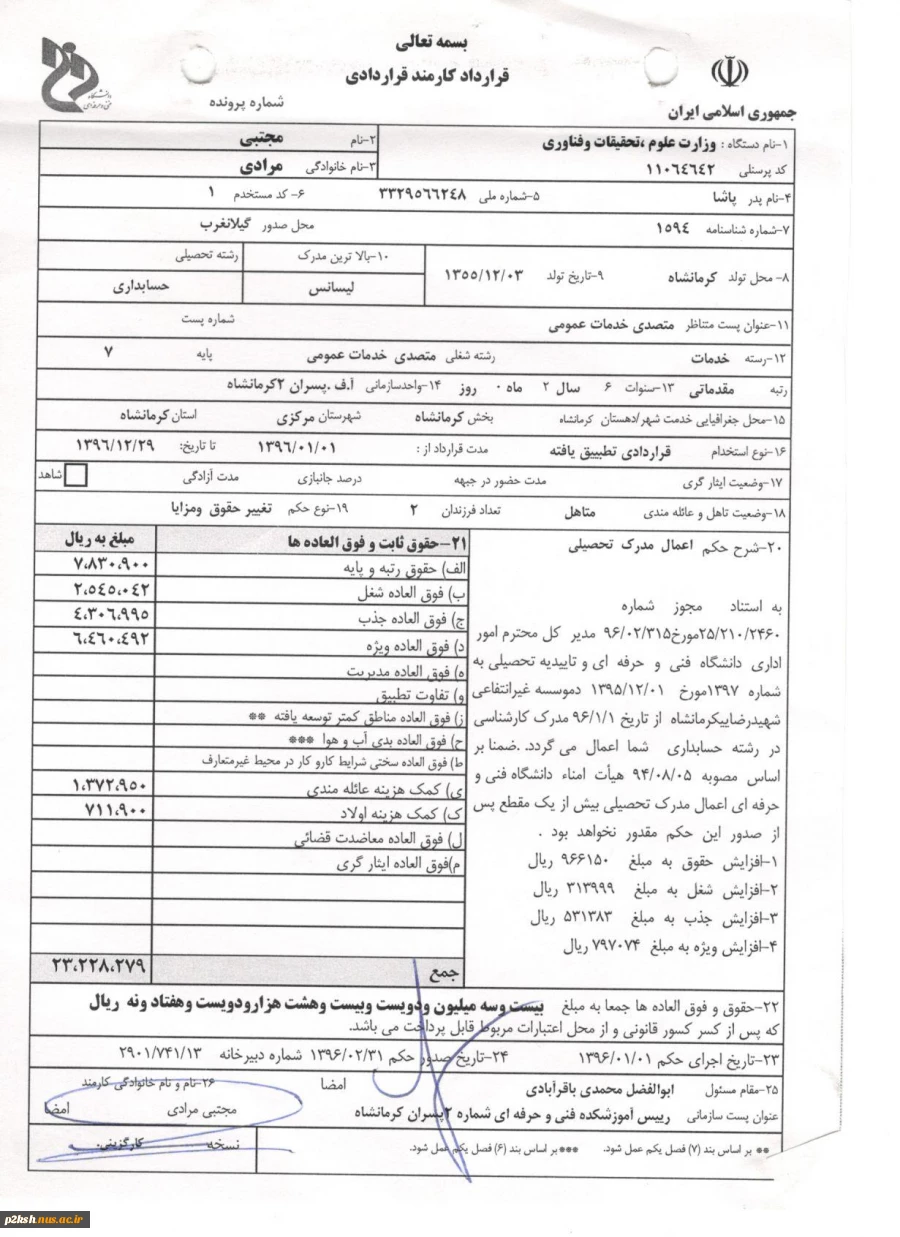 بسمه تعالی
قرارداد کارمند قراردادی
جمهوری اسلامی ایران
شماره پرونده
۱-نام دستگاه : وزارت علوم ،تحقیقات وفناوری
کد پرسنلی ۱۱۰۶۴۶۴۲
۲-نام مجتبی
۳-نام خانوادگی مرادی
۴-نام پدر پاشا ۵-شماره ملی ۳۳۲۹۵۶۶۲۴۸ ۶- کد مستخدم ۱
۷-شماره شناسنامه ۱۵۹۴ محل صدور گیلانغرب
۸- محل تولد کرمانشاه ۹-تاریخ تولد ۱۳۵۵/۱۲/۰۳
۱۰-بالا ترین مدرک رشته تحصیلی
لیسانس حسابداری
۱۱-عنوان پست متناظر متصدی خدمات عمومی شماره پست
۱۲-رسته خدمات رشته شغلی متصدی خدمات عمومی پایه ۷
رتبه مقدماتی ۱۳-سنوات ۶ سال ۲ ماه ۰ روز ۱۴-واحدسازمانی آ.ف .پسران ۲کرمانشاه
۱۵-محل جغرافیایی خدمت شهر/دهستان کرمانشاه بخش کرمانشاه شهرستان مرکزی استان کرمانشاه
۱۶-نوع استخدام قراردادی تطبییق یافته مدت قرارداد از : ۱۳۹۶/۰۱/۰۱ تا تاریخ: ۱۳۹۶/۱۲/۲۹
۱۷-وضعیت ایثار گری مدت حضور در جبهه درصد جانبازی مدت آزادگی شاهد
۱۸-وضعیت تاهل و عائله مندی متاهل تعداد فرزندان ۲ ۱۹-نوع حکم تغییر حقوق ومزایا
۲۰-شرح حکم اعمال مدرک تحصیلی
به استناد مجوز شماره
۲۵/۲۱۰/۲۴۶۰مورخ۹۶/۰۲/۳۱۵ مدیر کل محترم امور
اداری دانشگاه فنی و حرفه ای و تاییدیه تحصیلی به
شماره ۱۳۹۷مورخ ۱۳۹۵/۱۲/۰۱ دموسسه غیرانتفاعی
شهیدرضاییکرمانشاه از تاریخ ۹۶/۱/۱ مدرک کارشناسی
در رشته حسابداری شما اعمال می گردد. .ضمنا بر
اساس مصوبه ۹۴/۰۸/۰۵ هیأت امناء دانشگاه فنی و
حرفه ای اعمال مدرک تحصیلی بیش از یک مقطع پس
از صدور این حکم مقدور نخواهد بود .
۱-افزایش حقوق به مبلغ ۹۶۶۱۵۰ ریال
۲-افزایش شغل به مبلغ ۳۱۳۹۹۹ ریال
۳-افزایش جذب به مبلغ ۵۳۱۳۸۳ ریال
۴-افزایش ویژه به مبلغ ۷۹۷۰۷۴ ریال
۲۱-حقوق ثابت و فوق العاده ها مبلغ به ریال
الف) حقوق رتبه و پایه ۷،۸۳۰،۹۰۰
ب) فوق العاده شغل ۲،۵۴۵،۰۴۲
ج) فوق العاده جذب ۴،۳۰۶،۹۹۵
د) فوق العاده ویژه ۶،۴۶۰،۴۹۲
ه) فوق العاده مدیریت
و) تفاوت تطبیق
ز) فوق العاده مناطق کمتر توسعه یافته **
ح) فوق العاده بدی آب و هوا ***
ط) فوق العاده سختی شرایط کارو کار در محیط غیرمتعارف
ی) کمک هزینه عائله مندی ۱،۳۷۲،۹۵۰
ک) کمک هزینه اولاد ۷۱۱،۹۰۰
ل) فوق العاده معاضدت قضائی
م)فوق العاده ایثار گری
جمع ۲۳،۲۲۸،۲۷۹
۲۲-حقوق و فوق العاده ها جمعا به مبلغ بیست وسه میلیون ودویست وبیست وهشت هزارودویست وهفتاد ونه ریال
که پس از کسر کسور قانونی و از محل اعتبارات مربوط قابل پرداخت می باشد.
۲۳-تاریخ اجرای حکم ۱۳۹۶/۰۱/۰۱ ۲۴-تاریخ صدور حکم ۱۳۹۶/۰۲/۳۱ شماره دبیرخانه ۲۹۰۱/۷۴۱/۱۳
۲۵-مقام مسئول ابوالفضل محمدی باقرآبادی امضا
عنوان پست سازمانی رییس آموزشکده فنی و حرفه ای شماره ۲پسران کرمانشاه
۲۶-نام و نام خانوادگی کارمند
مجتبی مرادی امضا
** بر اساس بند (۷) فصل یکم عمل شود. ***بر اساس بند (۶) فصل یکم عمل شود.
نسخه کارگزینی.
p2ksh.nus.ac.ir